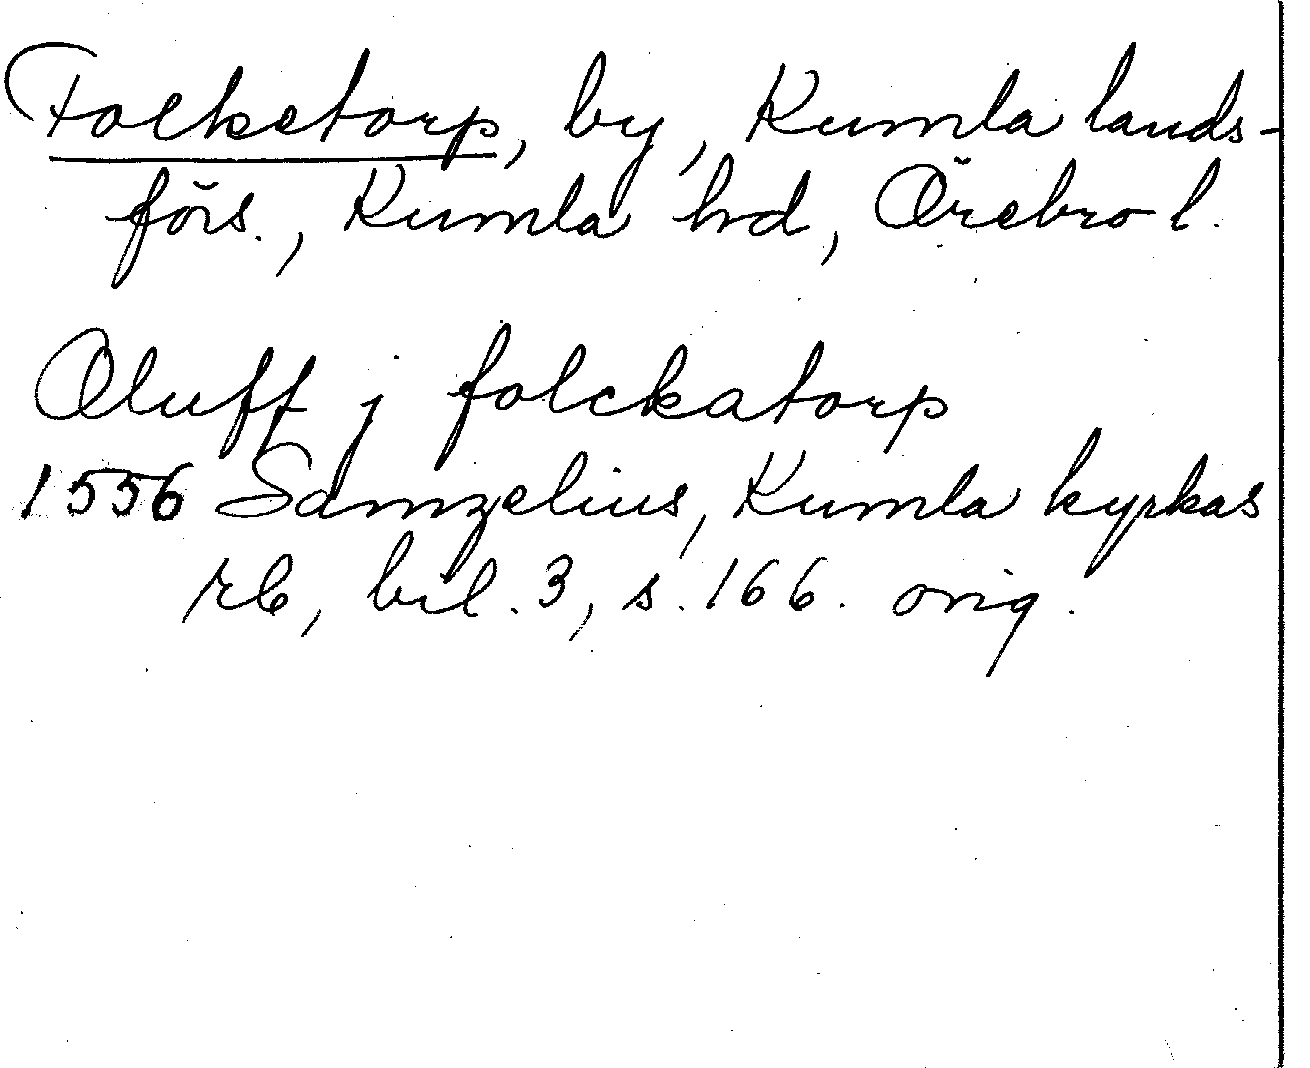 Folketorp, by, Kumla lands-
förs., Kumla hd, Örebro l.
Oluff j folckatorp
1556 Samzelius, Kumla kyrkas
rb, bil. 3, s. 166. orig.